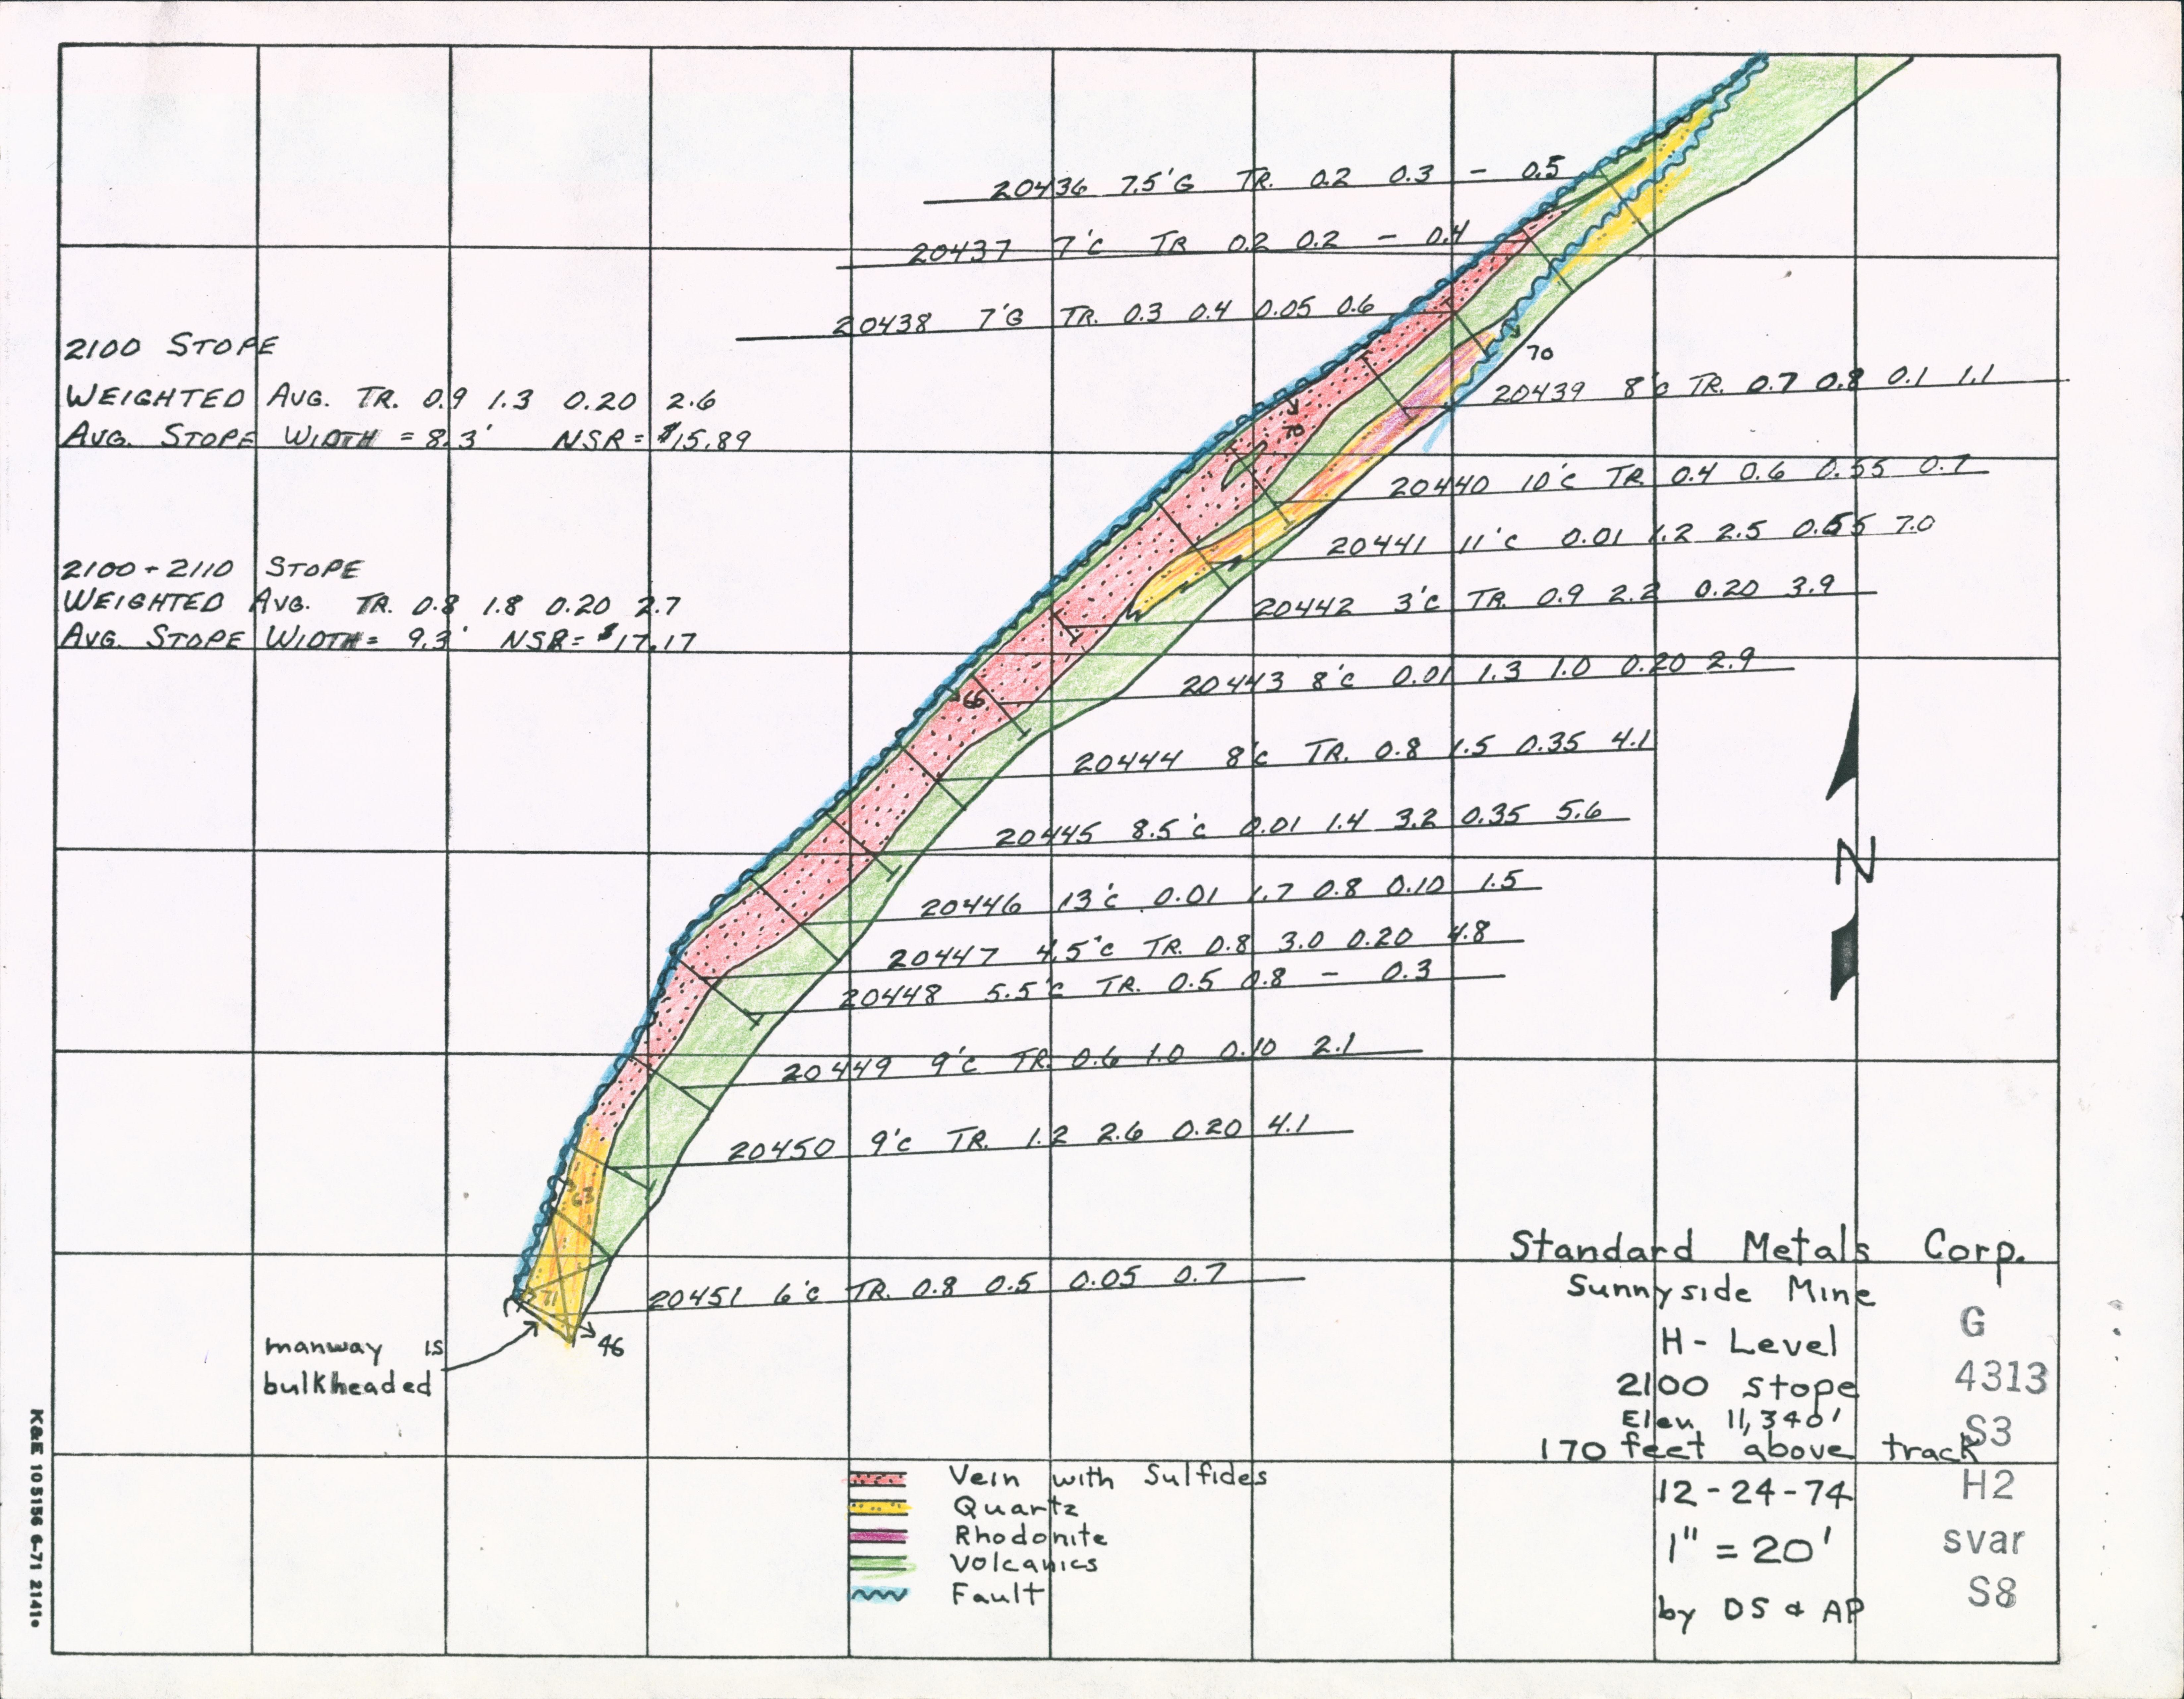 20436 7.5'G TR. 0.2 0.3 - 0.5
20437 7'C TR 0.2 0.2 - 0.4
20438 7'G TR. 0.3 0.4 0.05 0.6
2100 STOPE
WEIGHTED AVG. TR. 0.9 1.3 0.20 2.6
AVG. STOPE WIDTH = 8.3' NSR = $15.89
70
20439 8'C TR. 0.7 0.8 0.1 1.1
70
20440 10'C TR 0.4 0.6 0.55 0.7
20441 11'C 0.01 1.2 2.5 0.55 7.0
2100 + 2110 STOPE
WEIGHTED AVG. TR. 0.8 1.8 0.20 2.7
AVG. STOPE WIDTH = 9.3' NSR = $17.17
20442 3'C TR. 0.9 2.2 0.20 3.9
20443 8'C 0.01 1.3 1.0 0.20 2.9
66
20444 8'C TR. 0.8 1.5 0.35 4.1
20445 8.5'C 0.01 1.4 3.2 0.35 5.6
N
20446 13'C 0.01 1.7 0.8 0.10 1.5
20447 4.5'C TR. 0.8 3.0 0.20 4.8
20448 5.5'C TR. 0.5 0.8 - 0.3
20449 9'C TR. 0.6 1.0 0.10 2.1
20450 9'C TR. 1.2 2.6 0.20 4.1
63
20451 6'C TR. 0.8 0.5 0.05 0.7
71
46
manway is
bulkheaded
Standard Metals Corp.
Sunnyside Mine
H-Level
2100 stope
Elev 11,340'
170 feet above track
12-24-74
1" = 20'
by DS & AP
G
4313
S3
H2
svar
S8
Vein with Sulfides
Quartz
Rhodonite
Volcanics
Fault
K&E 105156 6-71 2141•